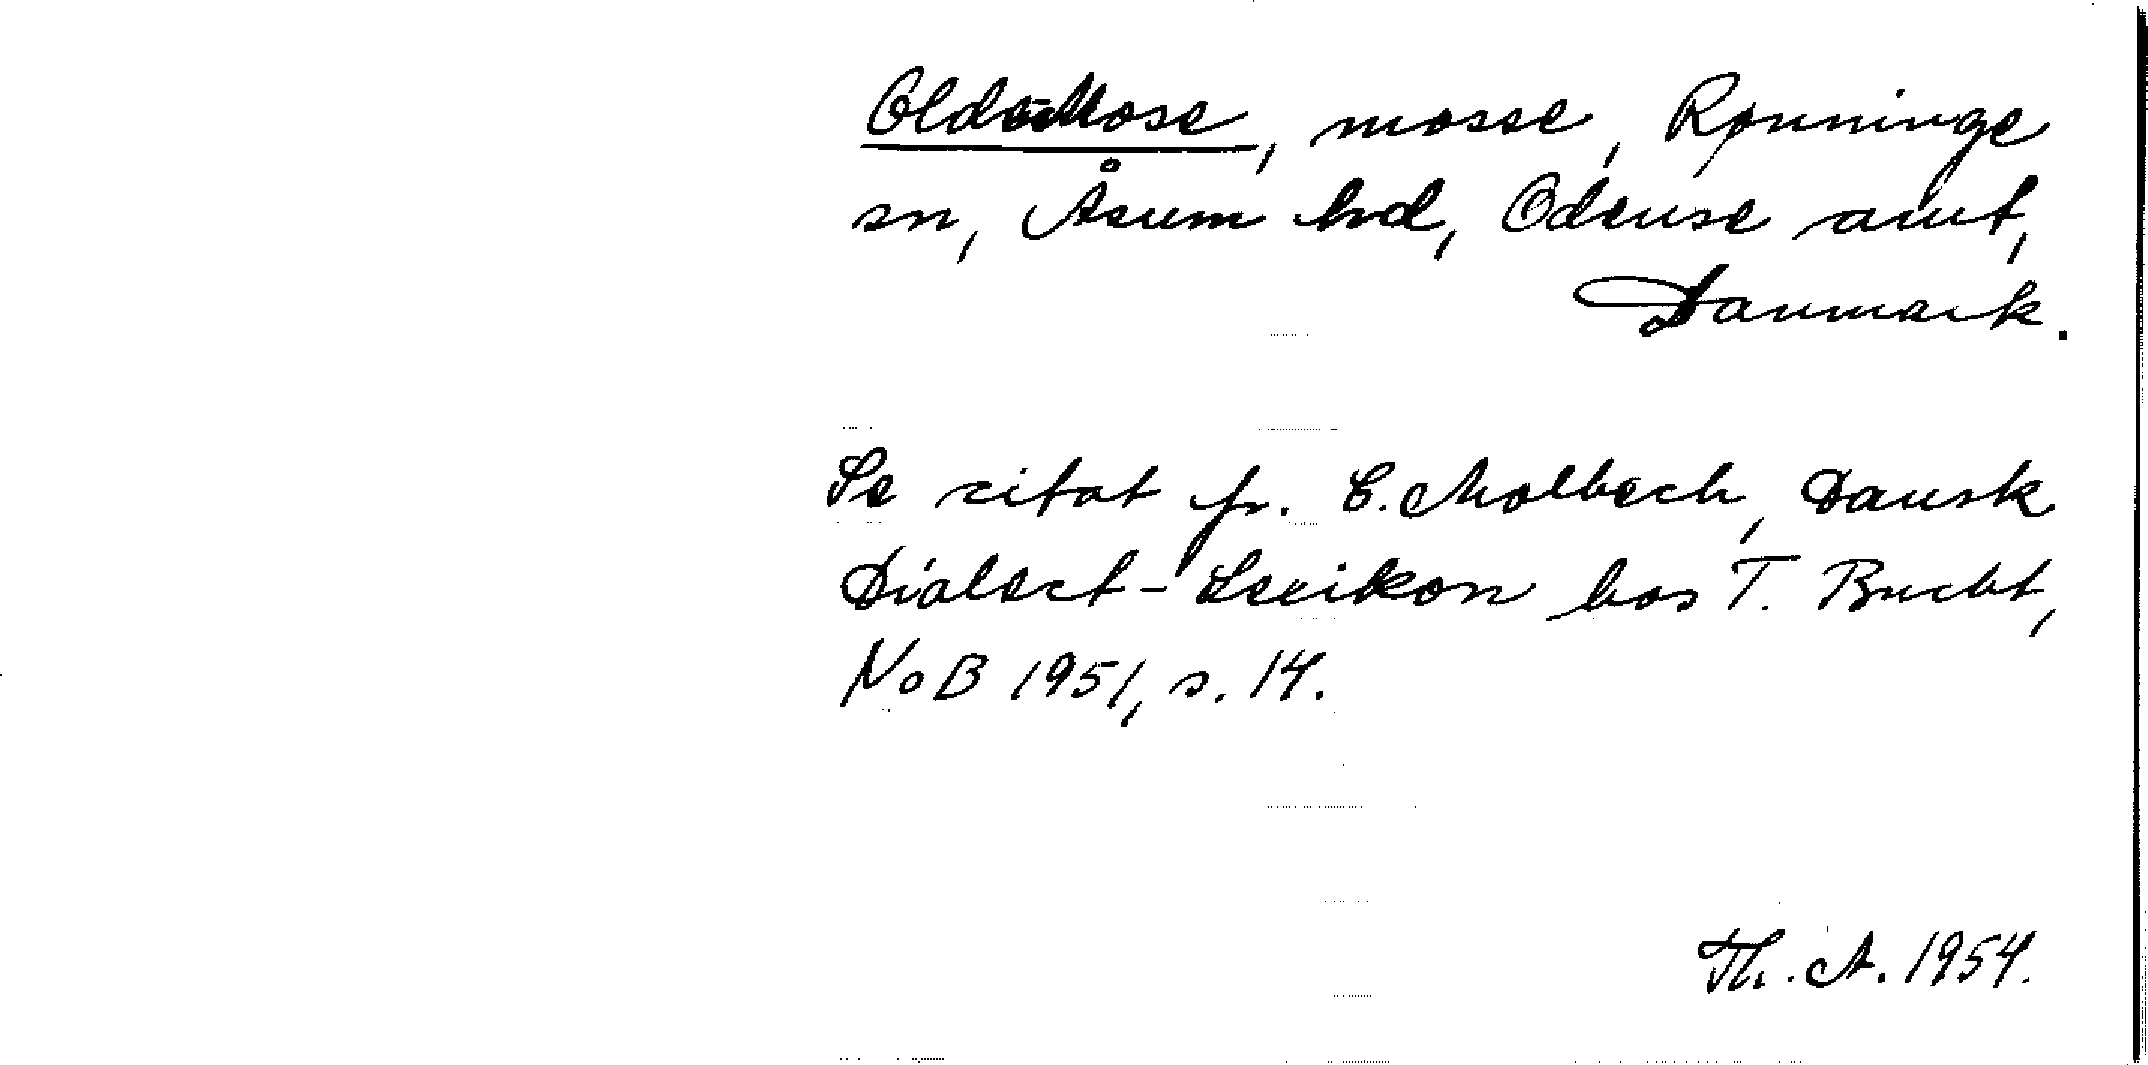 Olde-Mose, mosse, Rønninge
sn, Åsum hd, Odense amt,
Danmark.
Se citat fr. C. Molbech, Dansk
Dialect-Lexikon hos T. Bucht,
NoB 1951, s. 14.
Th. A. 1954.